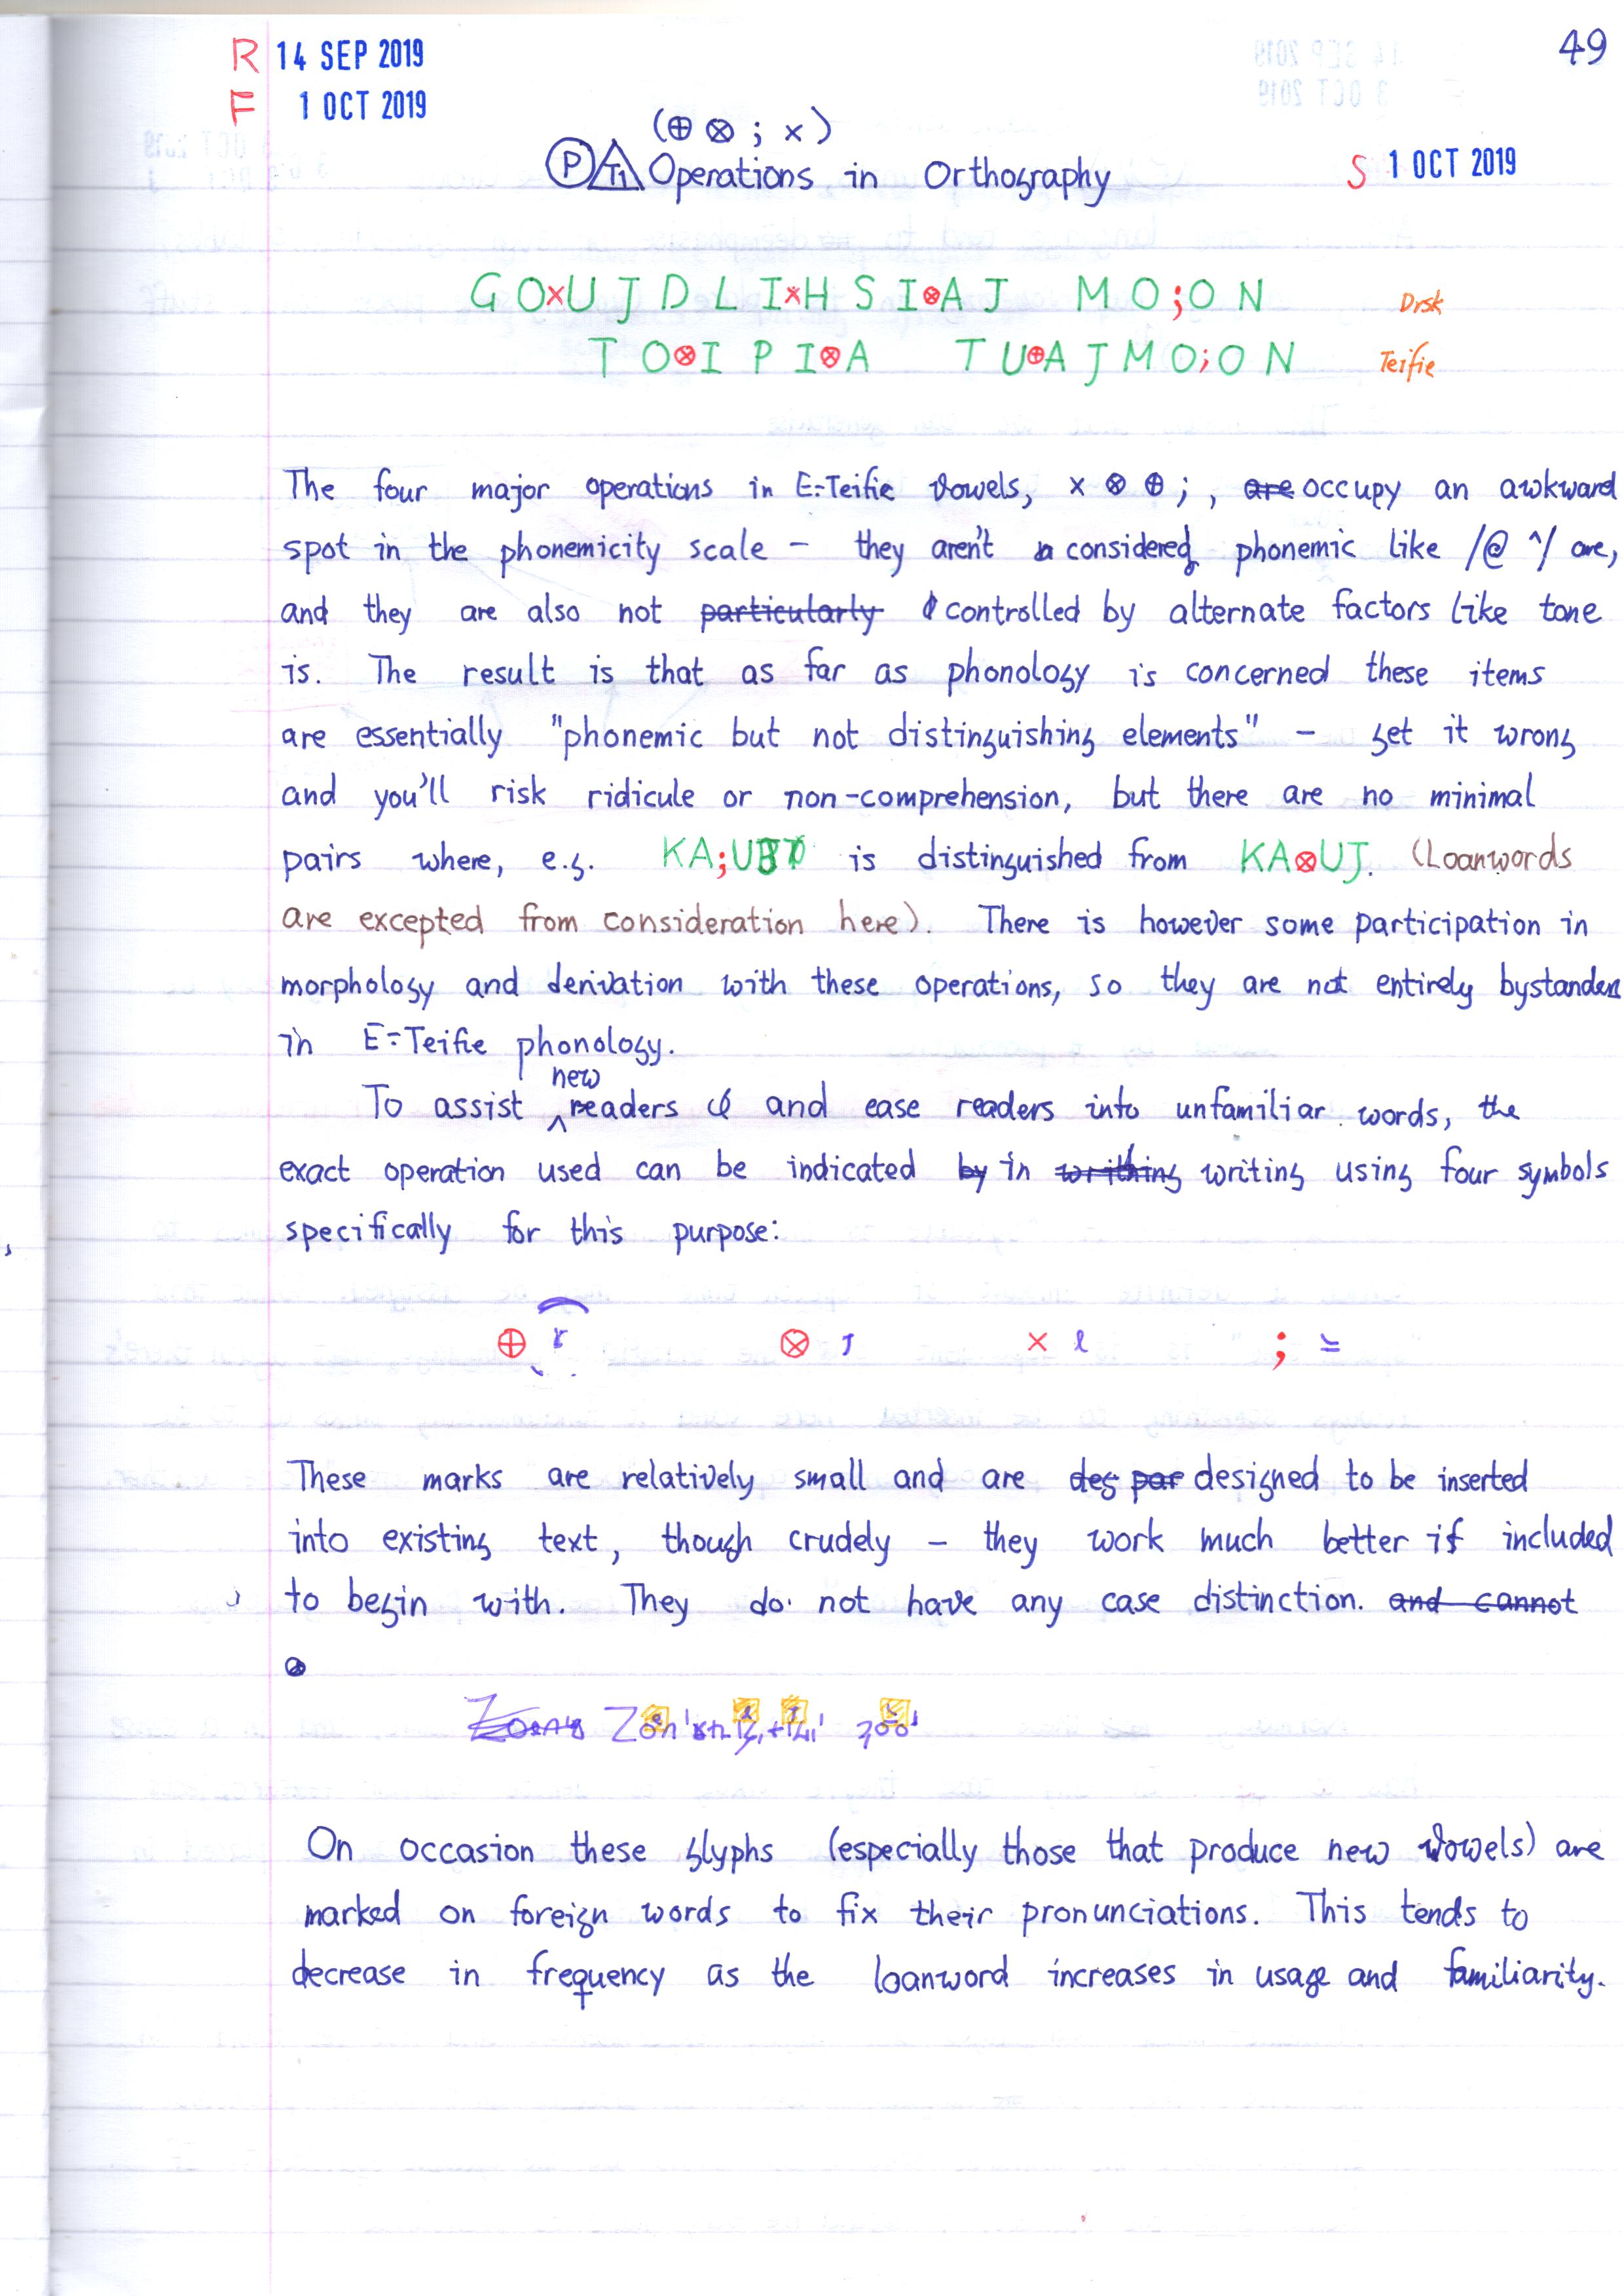 49
R 14 SEP 2019
F 1 OCT 2019
(⊕ ⊗ ; ×)
P T1 Operations in Orthography
S 1 OCT 2019
GO×UJDLI×HSI⊗AJ MO;ON Drsk
TO⊗IPI⊗A TU⊕AJMO;ON Teifie
The four major operations in E=Teifie vowels, × ⊗ ⊕ ; , are occupy an awkward
spot in the phonemicity scale – they aren't considered phonemic like /@ ^/ are,
and they are also not particularly controlled by alternate factors like tone
is. The result is that as far as phonology is concerned these items
are essentially "phonemic but not distinguishing elements" – get it wrong
and you'll risk ridicule or non-comprehension, but there are no minimal
pairs where, e.g. KA;UJ is distinguished from KA⊗UJ. (Loanwords
are excepted from consideration here). There is however some participation in
morphology and derivation with these operations, so they are not entirely bystanders
in E=Teifie phonology.
To assist new readers and ease readers into unfamiliar words, the
exact operation used can be indicated by in writhing writing using four symbols
specifically for this purpose:
⊕ ⊗ × ;
These marks are relatively small and are des par designed to be inserted
into existing text, though crudely – they work much better if included
to begin with. They do not have any case distinction. and cannot
On occasion these glyphs (especially those that produce new vowels) are
marked on foreign words to fix their pronunciations. This tends to
decrease in frequency as the loanword increases in usage and familiarity.